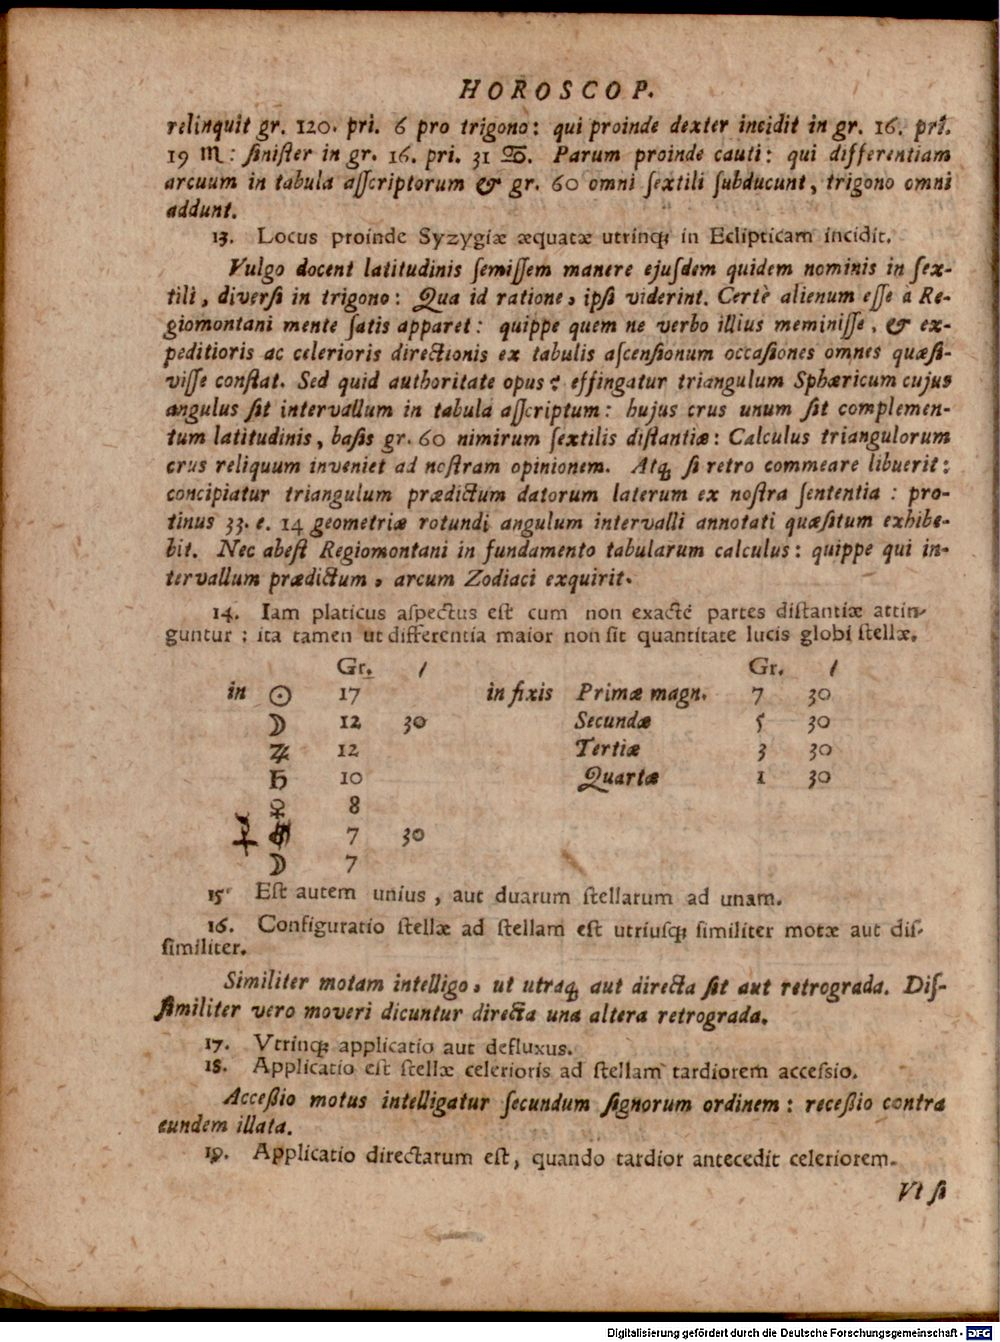 HOROSCOP.
relinquit gr. 120. pri. 6 pro trigono: qui proinde dexter incidit in gr. 16. pri.
19 ♏: sinister in gr. 16. pri. 31 ♑. Parum proinde cauti: qui differentiam
arcuum in tabula asscriptorum & gr. 60 omni sextili subducunt, trigono omni
addunt.
13. Locus proinde Syzygiæ æquatæ utrinq; in Eclipticam incidit.
Vulgo docent latitudinis semissem manere ejusdem quidem nominis in sex-
tili, diversi in trigono: Qua id ratione, ipsi viderint. Certè alienum esse à Re-
giomontani mente satis apparet: quippe quem ne verbo illius meminisse, & ex-
peditioris ac celerioris directionis ex tabulis ascensionum occasiones omnes quæsi-
visse constat. Sed quid authoritate opus? effingatur triangulum Sphæricum cujus
angulus sit intervallum in tabula asscriptum: hujus crus unum sit complemen-
tum latitudinis, basis gr. 60 nimirum sextilis distantiæ: Calculus triangulorum
crus reliquum inveniet ad nostram opinionem. Atq; si retro commeare libuerit:
concipiatur triangulum prædictum datorum laterum ex nostra sententia: pro-
tinus 33. e. 14 geometriæ rotundi angulum intervalli annotati quæsitum exhibe-
bit. Nec abest Regiomontani in fundamento tabularum calculus: quippe qui in-
tervallum prædictum, arcum Zodiaci exquirit.
14. Iam platicus aspectus est cum non exactè partes distantiæ attin-
guntur; ita tamen ut differentia maior non sit quantitate lucis globi stellæ.
Gr. / Gr. /
in ☉ 17 in fixis Primæ magn. 7 30
☽ 12 30 Secundæ 5 30
♃ 12 Tertiæ 3 30
♄ 10 Quartæ 1 30
♀ 8
7 30
☽ 7
15. Est autem unius, aut duarum stellarum ad unam.
16. Configuratio stellæ ad stellam est utriusq; similiter motæ aut dis-
similiter.
Similiter motam intelligo, ut utraq; aut directa sit aut retrograda. Dis-
similiter vero moveri dicuntur directa una altera retrograda.
17. Vtrinq; applicatio aut defluxus.
18. Applicatio est stellæ celerioris ad stellam tardiorem accessio.
Accessio motus intelligatur secundum signorum ordinem: recessio contra
eundem illata.
19. Applicatio directarum est, quando tardior antecedit celeriorem.
Vt si
Digitalisierung gefördert durch die Deutsche Forschungsgemeinschaft - DFG